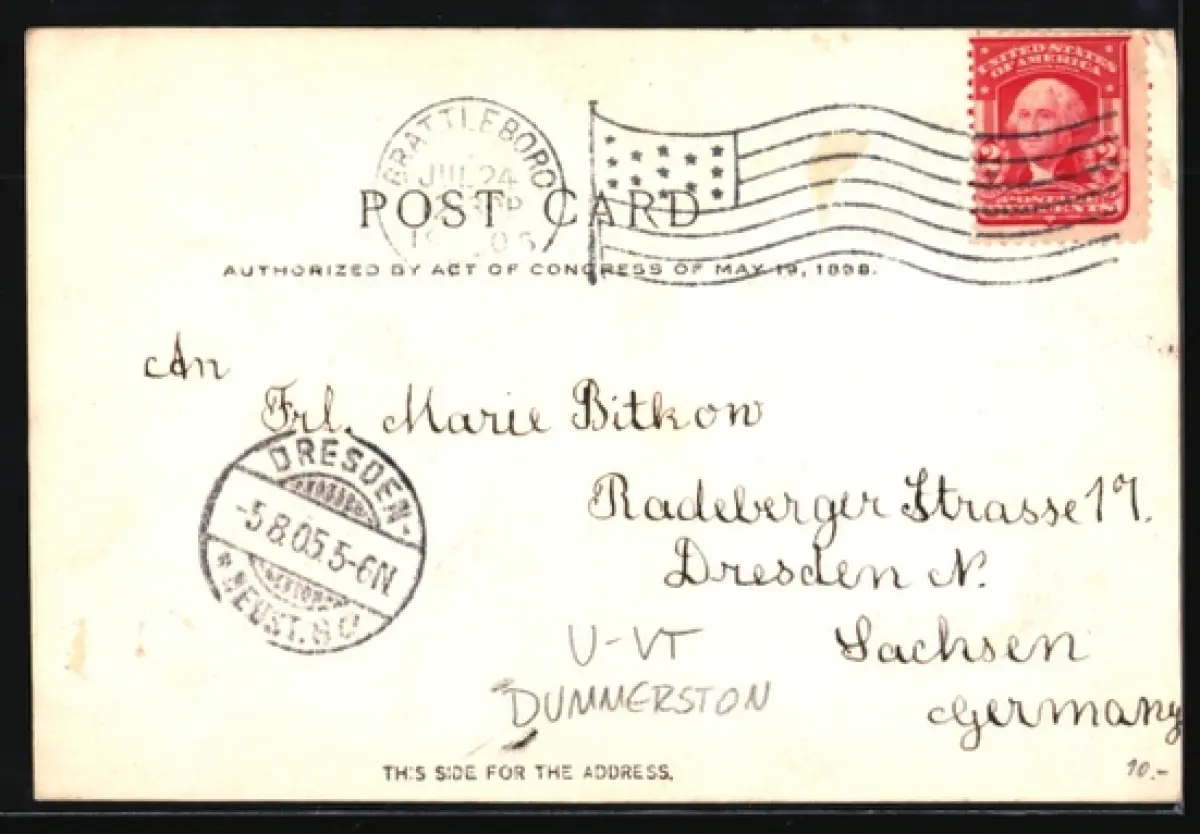 UNITED STATES
OF AMERICA
2 2
BRATTLEBORO
JUL 24
POST CARD
AUTHORIZED BY ACT OF CONGRESS OF MAY 19, 1898.
An
Frl. Marie Bitkow
DRESDEN-
-5.8.05.5-6N.
* NEUST. 8 c
Radeberger Strasse 17.
Dresden N.
Sachsen
Germany
U-VT
DUMMERSTON
THIS SIDE FOR THE ADDRESS.
10.-